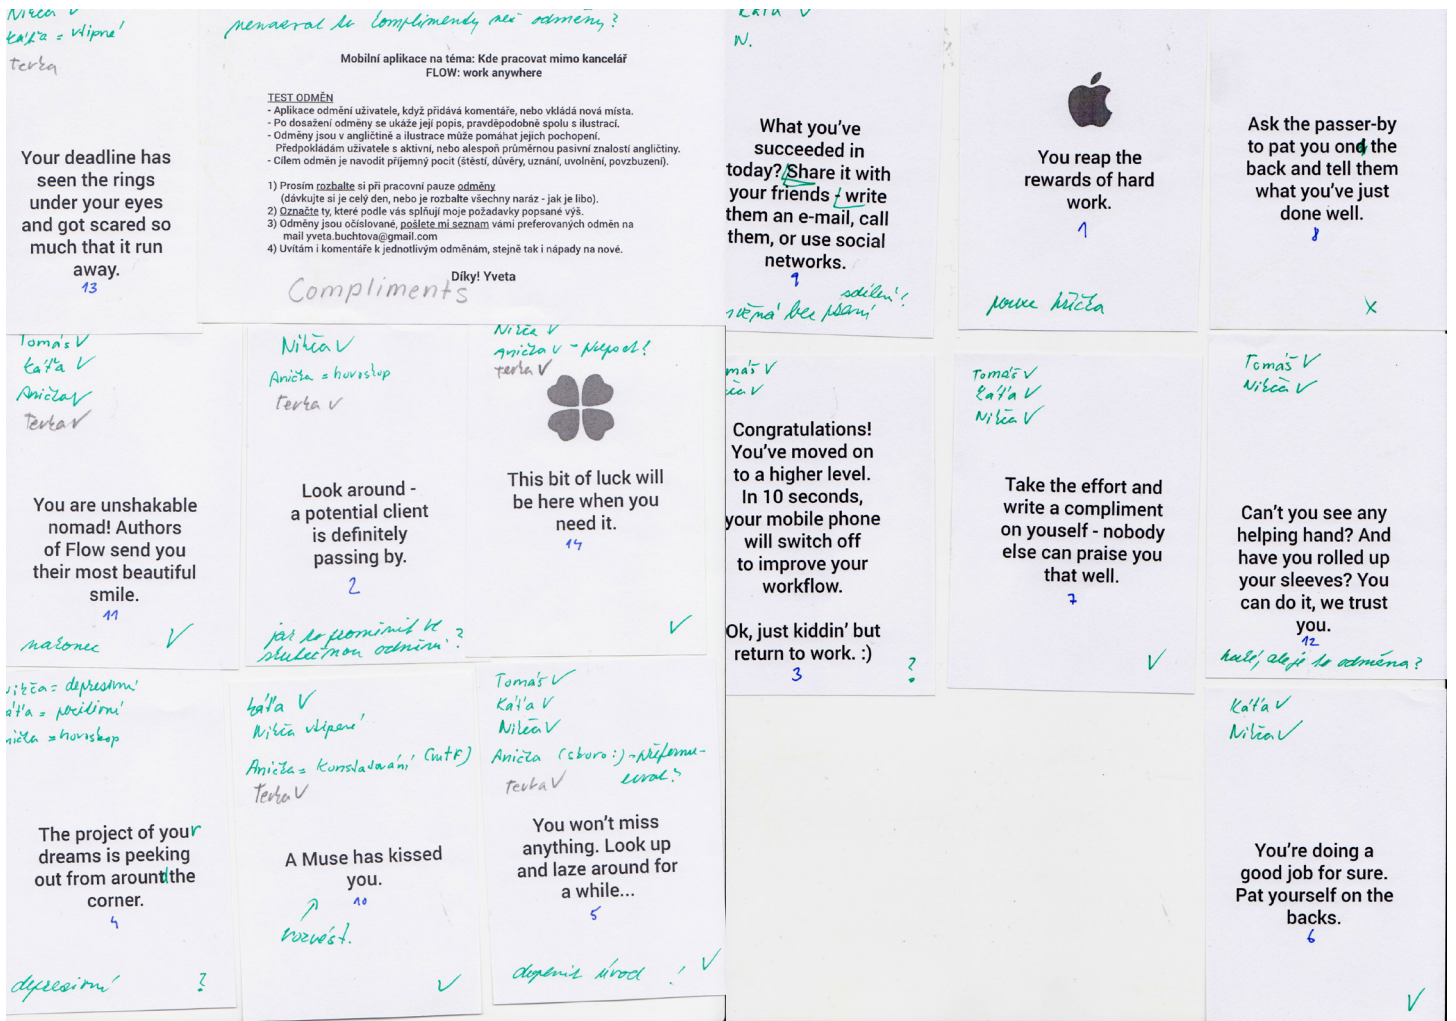 Nikča V
Káťa = vtipné
Terka
Your deadline has
seen the rings
under your eyes
and got scared so
much that it run
away.
13
nenazvat to komplimenty než odměny?
Mobilní aplikace na téma: Kde pracovat mimo kancelář
FLOW: work anywhere
TEST ODMĚN
- Aplikace odmění uživatele, když přidává komentáře, nebo vkládá nová místa.
- Po dosažení odměny se ukáže její popis, pravděpodobně spolu s ilustrací.
- Odměny jsou v angličtině a ilustrace může pomáhat jejich pochopení.
Předpokládám uživatele s aktivní, nebo alespoň průměrnou pasivní znalostí angličtiny.
- Cílem odměn je navodit příjemný pocit (štěstí, důvěry, uznání, uvolnění, povzbuzení).
1) Prosím rozbalte si při pracovní pauze odměny
(dávkujte si je celý den, nebo je rozbalte všechny naráz - jak je libo).
2) Označte ty, které podle vás splňují moje požadavky popsané výš.
3) Odměny jsou očíslované, pošlete mi seznam vámi preferovaných odměn na
mail yveta.buchtova@gmail.com
4) Uvítám i komentáře k jednotlivým odměnám, stejně tak i nápady na nové.
Díky! Yveta
Compliments
Káťa V
N.
What you've
succeeded in
today? Share it with
your friends - write
them an e-mail, call
them, or use social
networks.
9
sdílení!
bez psaní
You reap the
rewards of hard
work.
1
pouze hříčka
Ask the passer-by
to pat you ond the
back and tell them
what you've just
done well.
8
x
Tomáš V
Káťa V
Anička V
Terka V
You are unshakable
nomad! Authors
of Flow send you
their most beautiful
smile.
11
nakonec V
Nikča V
Anička = horoskop
Terka V
Look around -
a potential client
is definitely
passing by.
2
jak to proměnit ve
skutečnou odměnu?
Nikča V
Anička V
Terka V
This bit of luck will
be here when you
need it.
14
V
máš V
ča V
Congratulations!
You've moved on
to a higher level.
In 10 seconds,
your mobile phone
will switch off
to improve your
workflow.
Ok, just kiddin' but
return to work. :)
3
?
Tomáš V
Káťa V
Nikča V
Take the effort and
write a compliment
on youself - nobody
else can praise you
that well.
7
V
Tomáš V
Nikča V
Can't you see any
helping hand? And
have you rolled up
your sleeves? You
can do it, we trust
you.
12
hezké, ale je to odměna?
Nikča = depresivní
Káťa = pozitivní
Anička = horoskop
The project of your
dreams is peeking
out from around the
corner.
4
depresivní ?
Káťa V
Nikča vtipné
Anička = konstatování (WTF)
Terka V
A Muse has kissed
you.
10
rozvést.
V
Tomáš V
Káťa V
Nikča V
Anička (skoro :) - přeformu-
lovat?
Terka V
You won't miss
anything. Look up
and laze around for
a while...
5
doplnit úvod ! V
Káťa V
Nikča V
You're doing a
good job for sure.
Pat yourself on the
backs.
6
V